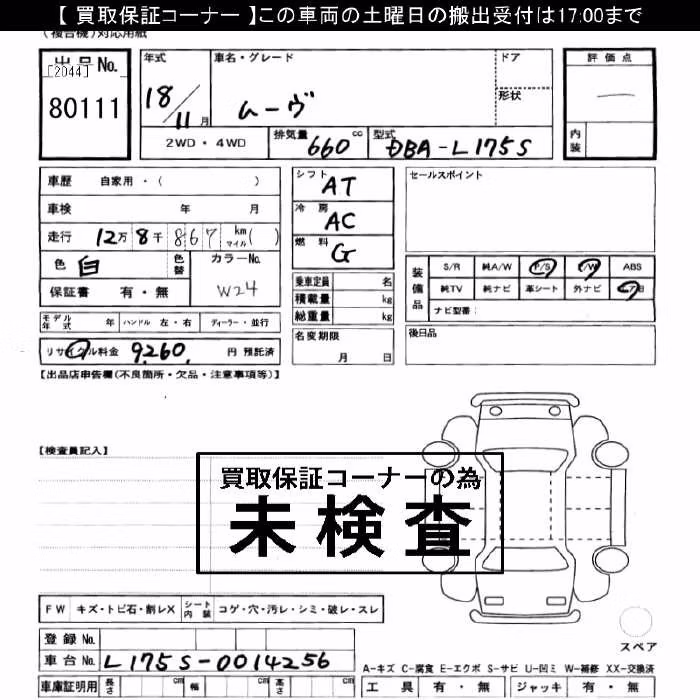 【 買取保証コーナー 】この車両の土曜日の搬出受付は17:00まで
(複合機)対応用紙
出品No. [2044] 80111
年式 18/11月
車名・グレード ムーヴ
ドア
形状
評価点 —
内装
2WD・4WD
排気量 660cc
型式 DBA-L175S
車歴 自家用・( )
車検 年 月
走行 12万8千867 km マイル( )
色 白
色替
カラーNo. W24
保証書 有・無
シフト AT
冷房 AC
燃料 G
乗車定員 名
積載量 kg
総重量 kg
名変期限 月 日
セールスポイント
装備品
S/R 純A/W P/S P/W ABS
純TV 純ナビ 革シート 外ナビ
ナビ型番:
後日品
モデル年式 年 ハンドル 左・右 ディーラー・並行
リサイクル料金 9260. 円 預託済
【出品店申告欄(不良箇所・欠品・注意事項等)】
【検査員記入】
買取保証コーナーの為
未検査
FW キズ・トビ石・割レX
シート内装 コゲ・穴・汚レ・シミ・破レ・スレ
登録No.
車台No. L175S-0014256
スペア
A-キズ C-腐食 E-エクボ S-サビ U-凹ミ W-補修 XX-交換済
車庫証明用 長さ cm 幅 cm 高さ cm
工具 有・無 ジャッキ 有・無